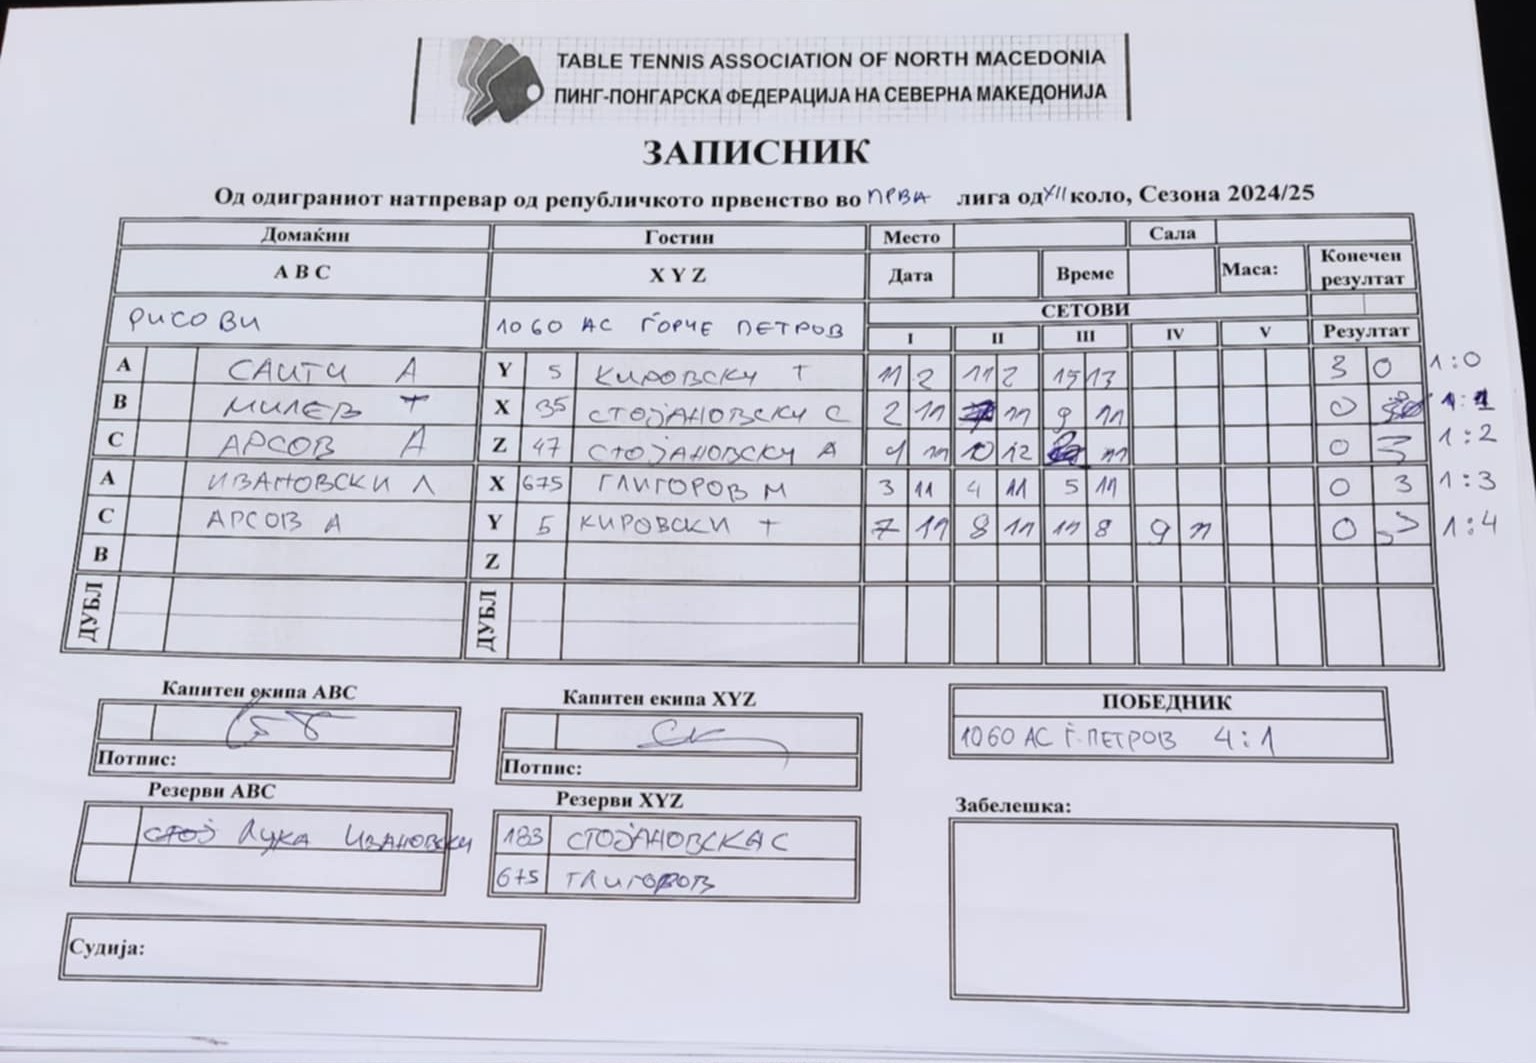 TABLE TENNIS ASSOCIATION OF NORTH MACEDONIA
ПИНГ-ПОНГАРСКА ФЕДЕРАЦИЈА НА СЕВЕРНА МАКЕДОНИЈА
ЗАПИСНИК
Од одиграниот натпревар од републичкото првенство во ПРВА лига од XII коло, Сезона 2024/25
Домаќин Гостин Место Сала
A B C X Y Z Дата Време Маса: Конечен резултат
РИСОВИ 1060 АС ЃОРЧЕ ПЕТРОВ СЕТОВИ
I II III IV V Резултат
A САИТИ А Y 5 КИРОВСКИ Т 11 2 11 2 15 13 3 0 1:0
B МИЛЕВ Т X 35 СТОЈАНОВСКИ С 2 11 11 9 11 0 1:1
C АРСОВ А Z 47 СТОЈАНОВСКИ А 9 11 10 12 11 0 3 1:2
A ИВАНОВСКИ Л X 675 ГЛИГОРОВ М 3 11 4 11 5 11 0 3 1:3
C АРСОВ А Y 5 КИРОВСКИ Т 7 11 8 11 11 8 9 11 0 3 1:4
B Z
ДУБЛ ДУБЛ
Капитен екипа ABC Капитен екипа XYZ ПОБЕДНИК
1060 АС Ѓ. ПЕТРОВ 4:1
Потпис: Потпис:
Резерви ABC Резерви XYZ Забелешка:
Лука Ивановски 183 СТОЈАНОВСКА С
675 ГЛИГОРОВ
Судија: